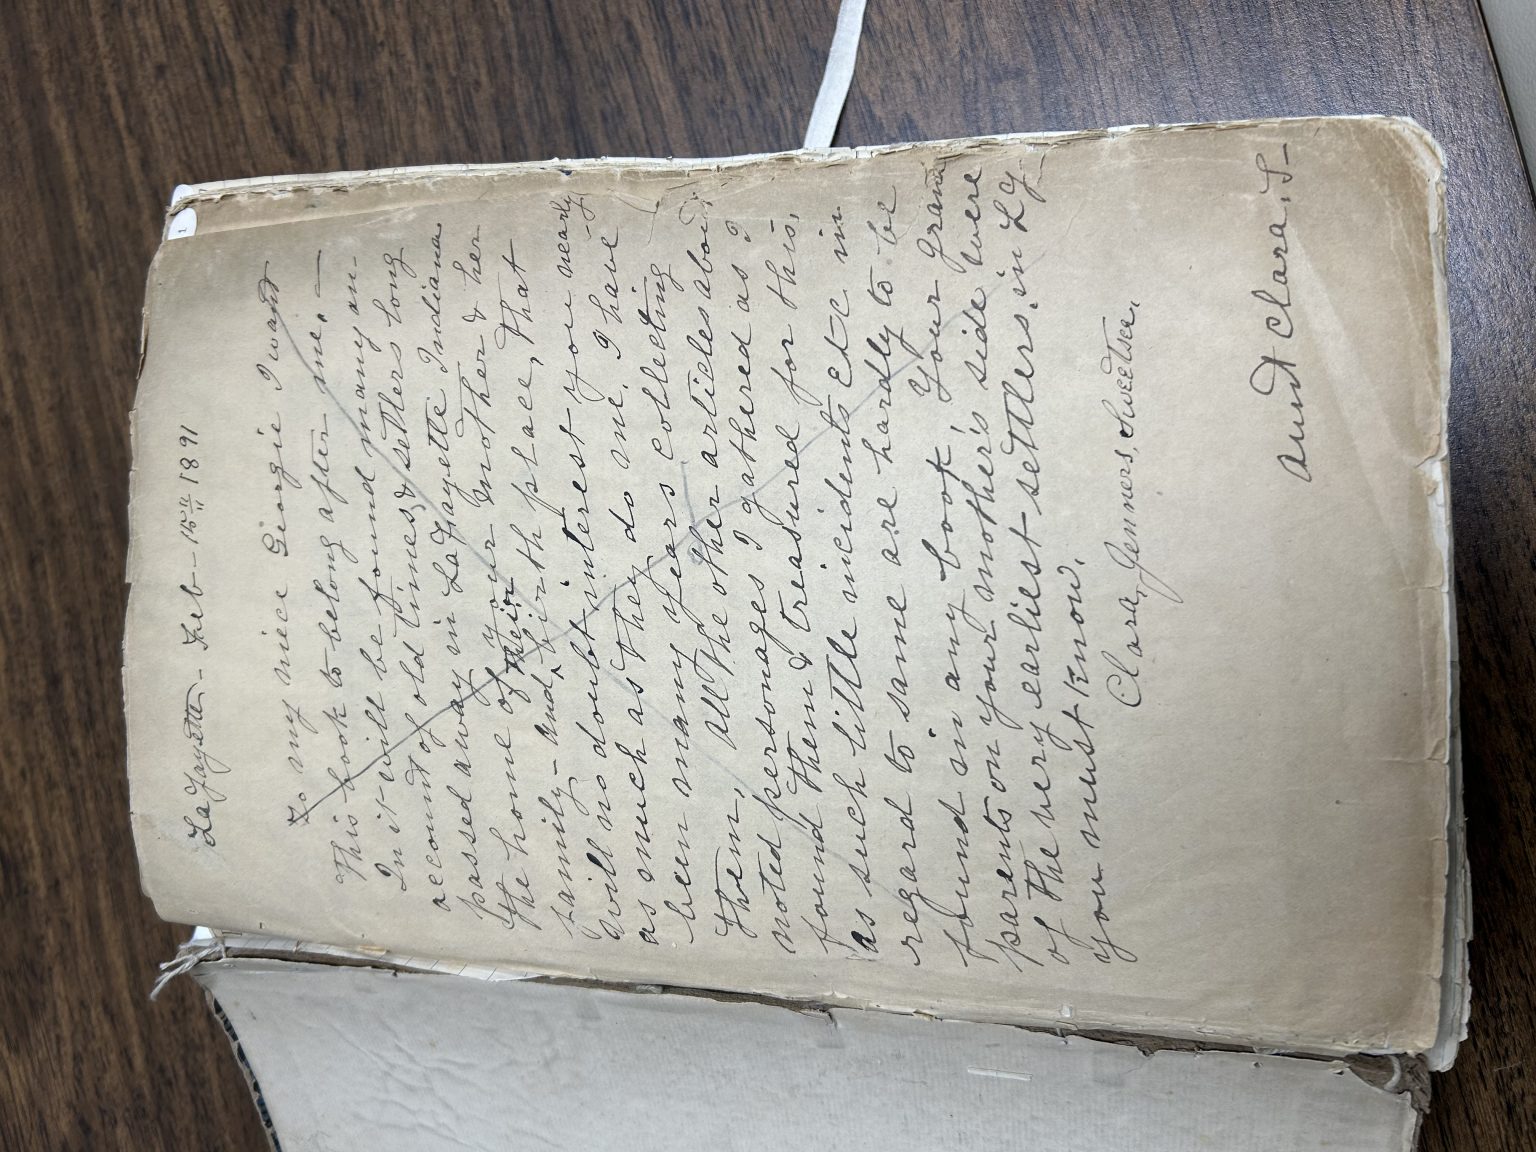 LaFayette - Feb - 15th 1891
To my niece Georgie I want
This book to belong after me, —
In it will be found many an-
account of old times, & settlers long
passed away in LaFayette Indiana
the home of your mother & her
family - and their birth place, That
will no doubt interest you nearly
as much as they do me. I have
been many years collecting
them, all the other articles about
noted personages I gathered as I
found them & treasured for this,
as such little incidents Etc in
regard to same are hardly to be
found in any book, Your grand
parents on your mother's side were
of the very earliest settlers. in LF
you must know.
Clara, Jenners, Sweetser,
Aunt Clara. S-
1